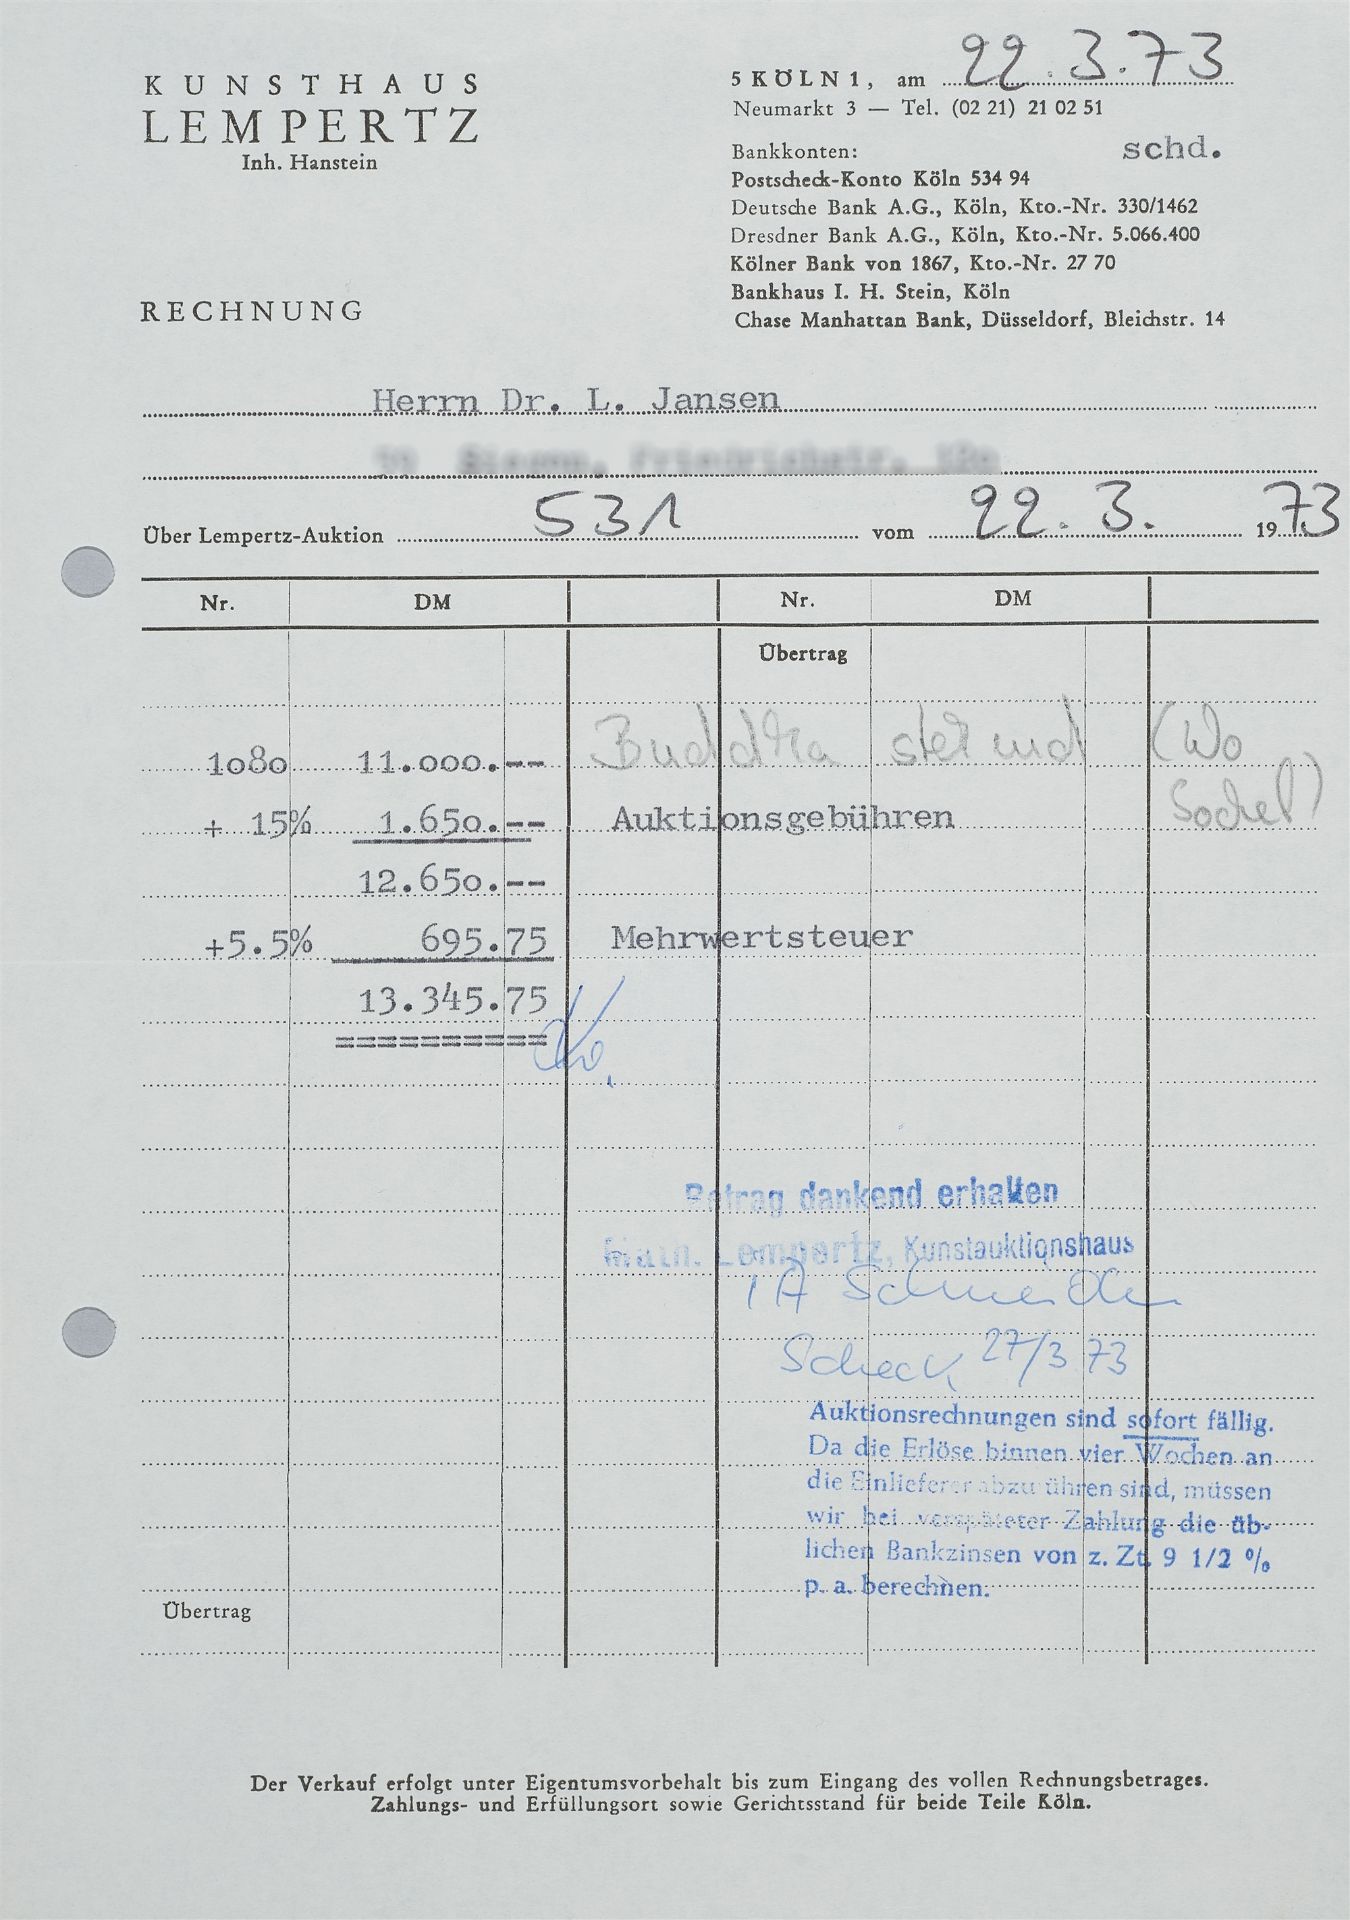 KUNSTHAUS
LEMPERTZ
Inh. Hanstein
5 KÖLN 1, am 22.3.73
Neumarkt 3 — Tel. (02 21) 21 02 51
Bankkonten: schd.
Postscheck-Konto Köln 534 94
Deutsche Bank A.G., Köln, Kto.-Nr. 330/1462
Dresdner Bank A.G., Köln, Kto.-Nr. 5.066.400
Kölner Bank von 1867, Kto.-Nr. 27 70
Bankhaus I. H. Stein, Köln
Chase Manhattan Bank, Düsseldorf, Bleichstr. 14
RECHNUNG
Herrn Dr. L. Jansen
Über Lempertz-Auktion 531 vom 22.3. 1973
Nr. DM Nr. DM
Übertrag
1080 11.000.-- Buddha stehend (Wo
Sockel)
+ 15% 1.650.-- Auktionsgebühren
12.650.--
+5.5% 695.75 Mehrwertsteuer
13.345.75
==========
Betrag dankend erhalten
Math. Lempertz, Kunstauktionshaus
iA Schneider
Scheck 27/3 73
Auktionsrechnungen sind sofort fällig.
Da die Erlöse binnen vier Wochen an
die Einlieferer abzuführen sind, müssen
wir bei verspäteter Zahlung die üb-
lichen Bankzinsen von z. Zt. 9 1/2 %
p. a. berechnen.
Übertrag
Der Verkauf erfolgt unter Eigentumsvorbehalt bis zum Eingang des vollen Rechnungsbetrages.
Zahlungs- und Erfüllungsort sowie Gerichtsstand für beide Teile Köln.